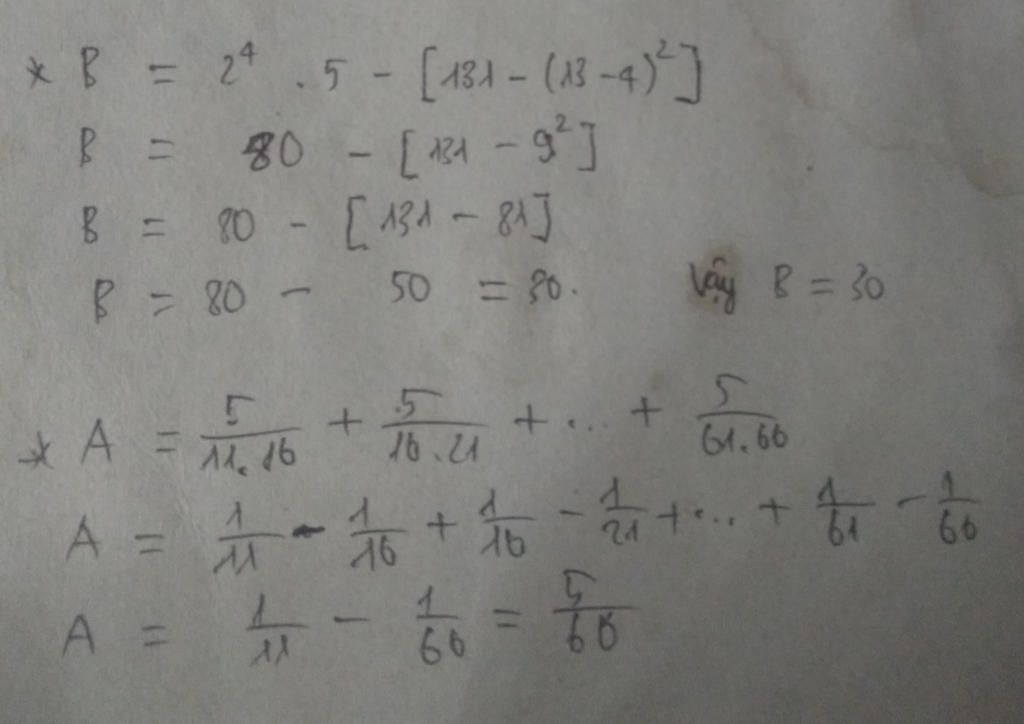 * B = 2⁴ . 5 - [131 - (13 - 4)²]
B = 80 - [131 - 9²]
B = 80 - [131 - 81]
B = 80 - 50 = 30. Vậy B = 30
* A = 5/11.16 + 5/16.21 + ... + 5/61.66
A = 1/11 - 1/16 + 1/16 - 1/21 + ... + 1/61 - 1/66
A = 1/11 - 1/66 = 5/66